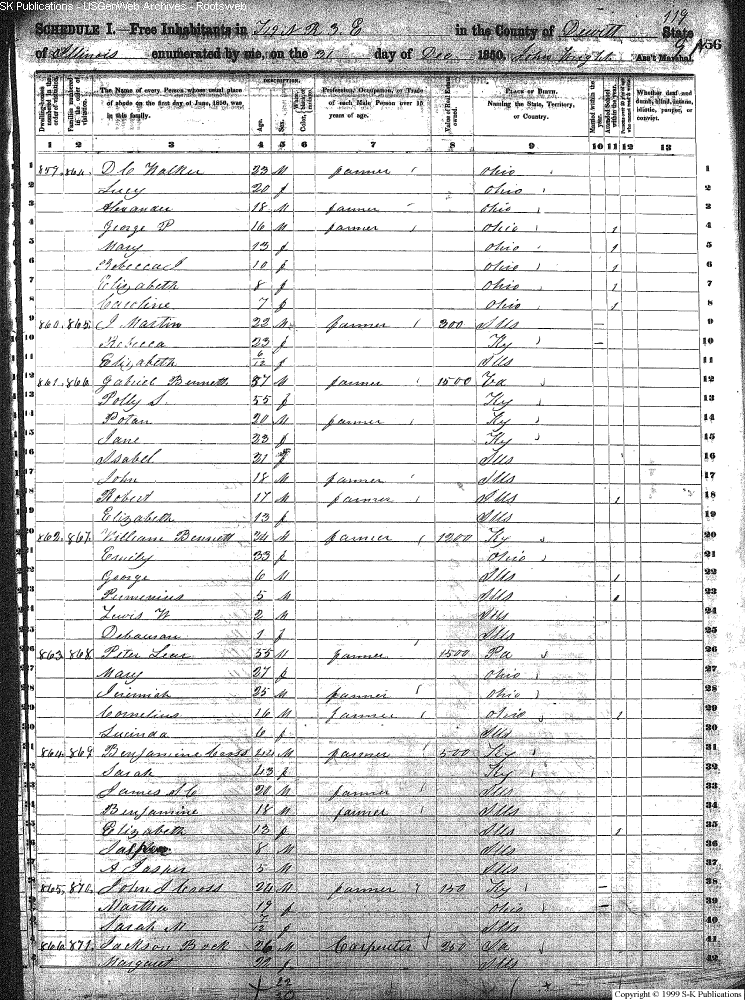 SK Publications - USGenWeb Archives - Rootsweb
119
SCHEDULE I.—Free Inhabitants in T19 N R 3 E in the County of Dewitt State
of Illinois enumerated by me, on the 31 day of Dec 1850. John Wright Ass't Marshal.
456
DESCRIPTION.
Dwelling-houses numbered in the order of visitation.
Families numbered in the order of visitation.
The Name of every Person whose usual place of abode on the first day of June, 1850, was in this family.
Age.
Sex.
Color,
Profession, Occupation, or Trade of each Male Person over 15 years of age.
Value of Real Estate owned.
PLACE OF BIRTH. Naming the State, Territory, or Country.
Married within the year.
Attended School within the year.
Whether deaf and dumb, blind, insane, idiotic, pauper, or convict.
1 2 3 4 5 6 7 8 9 10 11 12 13
1 864. D C Walker 23 M farmer Ohio 1
2 Lucy 20 f Ohio 2
3 Alexander 18 M farmer Ohio 3
4 George P 16 M farmer Ohio 1 4
5 Mary 13 f Ohio 1 5
6 Rebecca J 10 f Ohio 1 6
7 Elizabeth 8 f Ohio 1 7
8 Caroline 7 f Ohio 1 8
9 860. 865. J Martin 22 M farmer 300 Ills – 9
10 Rebecca 23 f Ky – 10
11 Elizabeth 6/12 f Ills 11
12 861. 866. Gabriel Bennett 57 M farmer 1500 12
13 Polly S. 55 f Ky 13
14 20 M farmer Ky 14
15 Jane 22 f Ky 15
16 Isabel 21 f Ills 16
17 John 18 M farmer Ills 17
18 Robert 17 M farmer Ills 1 18
19 Elizabeth 13 f Ills 19
20 862. 867. William Bennett 34 M farmer 1200 Ky 20
21 Emily 33 f Ohio 21
22 George 6 M Ills 1 22
23 5 M Ills 1 23
24 Lewis W 2 M Ills 24
25 1 f Ills 25
26 863. 868. Peter Lear 55 M farmer 1500 Pa 26
27 Mary 27 f Ohio 27
28 Jeremiah 25 M farmer Ohio 28
29 Cornelius 16 M farmer Ohio 1 29
30 Lucinda 6 f Ills 30
31 864. 869. Benjamine Cross 44 M farmer 500 Ky 31
32 Sarah 43 f Ky 32
33 James 20 M farmer Ills 33
34 Benjamine 18 M farmer Ills 34
35 Elizabeth 13 f Ills 1 35
36 8 M Ills 36
37 A Jasper 5 M Ills 37
38 865. 870. John J Cross 24 M farmer 150 Ky – 38
39 Martha 19 f Ohio – 39
40 Sarah M 7/12 f Ills 40
41 866. 871. Jackson Bock 26 M Carpenter 200 41
42 Margaret 20 f Ills 42
22
Copyright © 1999 S-K Publications